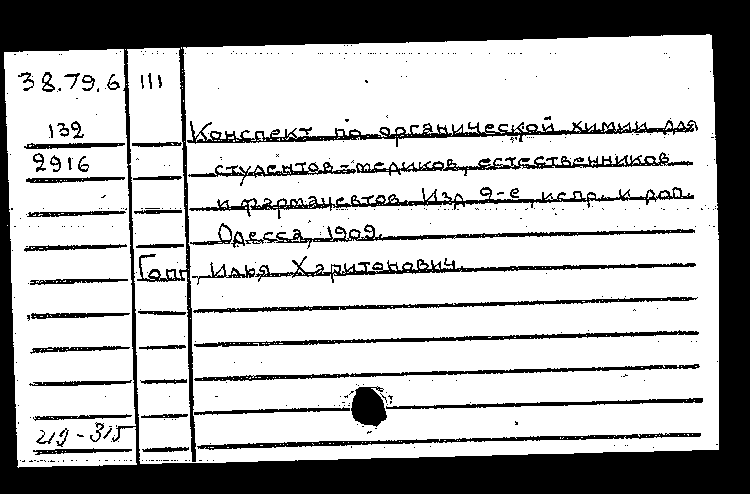 38.79.6 III
132 Конспект по органической химии для
2916 студентов-медиков, естественников
и фармацевтов. Изд 2-е, испр. и доп.
Одесса, 1909.
Гопп, Илья Харитонович.
219-315